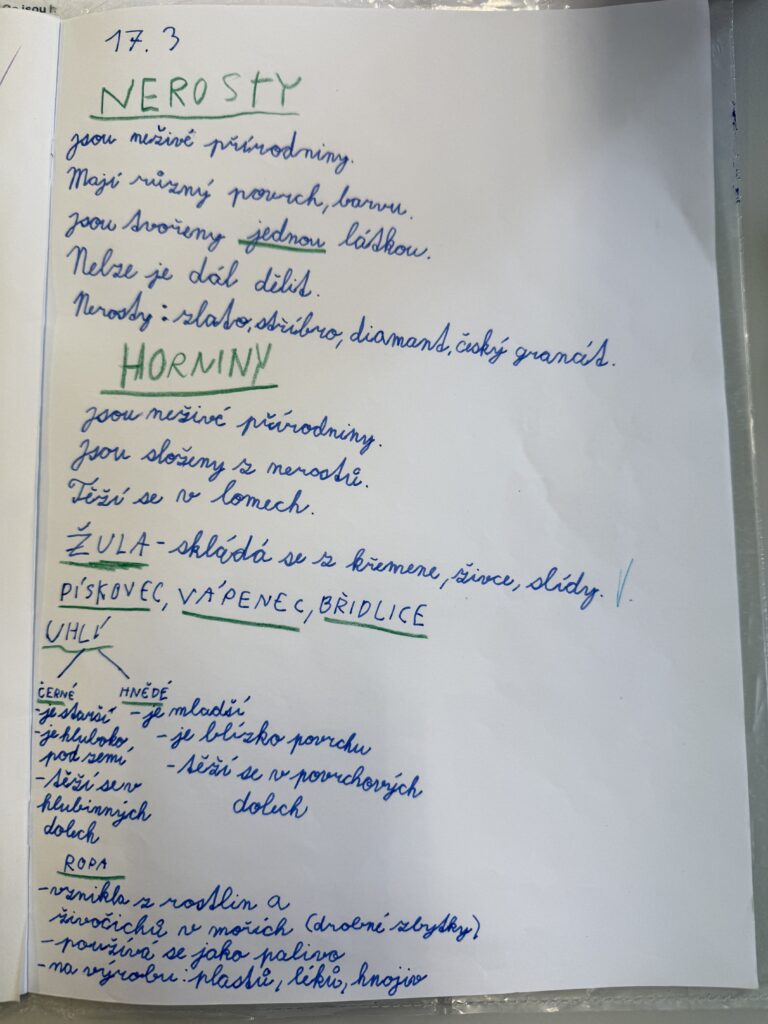 17. 3
NEROSTY
jsou neživé přírodniny.
Mají různý povrch, barvu.
jsou tvořeny jednou látkou.
Nelze je dál dělit.
Nerosty: zlato, stříbro, diamant, český granát.
HORNINY
jsou neživé přírodniny.
Jsou složeny z nerostů.
Těží se v lomech.
ŽULA - skládá se z křemene, živce, slídy.
PÍSKOVEC, VÁPENEC, BŘIDLICE
UHLÍ
ČERNÉ
- je starší
- je hluboko
pod zemí
- těží se v
hlubinných
dolech
HNĚDÉ
- je mladší
- je blízko povrchu
- těží se v povrchových
dolech
ROPA
- vznikla z rostlin a
živočichů v mořích (drobné zbytky)
- používá se jako palivo
- na výrobu: plastů, léků, hnojiv